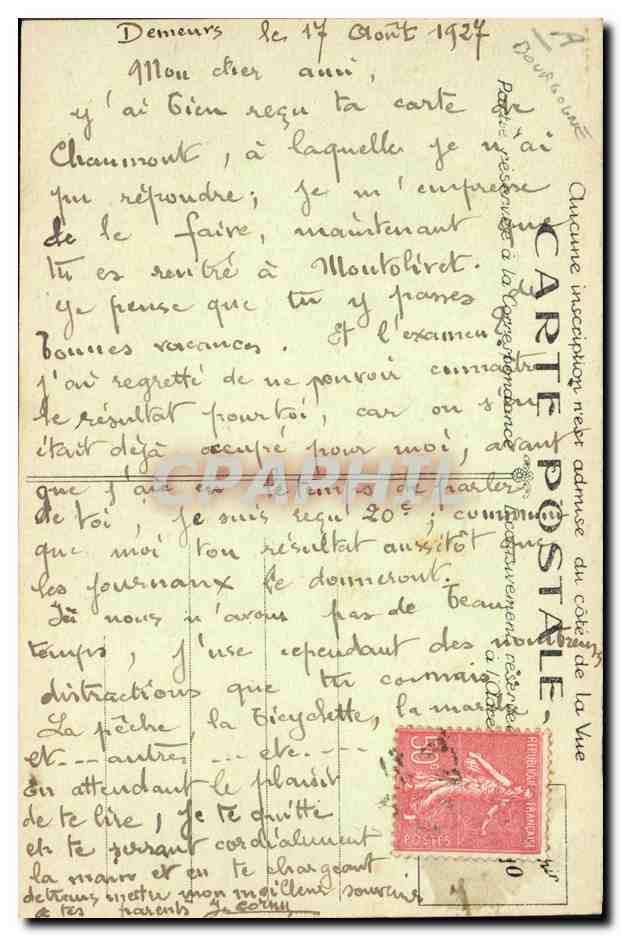 Demeurs le 17 Août 1927
Mon cher ami,
j'ai bien reçu ta carte de
Chaumont, à laquelle je n'ai
pu répondre; je m'empresse
de le faire, maintenant que
tu es rentré à Montolivet.
je pense que tu y passes de
bonnes vacances. Et l'examen,
j'ai regretté de ne pouvoir connaître
le résultat pour toi, car on s'en
était déjà occupé pour moi, avant
que j'aie eu le temps de parler
de toi, je suis reçu 20e;
que moi ton résultat aussitôt que
les journaux le donneront.
Ici nous n'avons pas de beau
temps, j'use cependant des nombreuses
distractions que tu connais
La pêche, la bicyclette, la marche,
et --- autres --- etc. ---
En attendant le plaisir
de te lire, je te quitte
en te serrant cordialement
la main et en te chargeant
de transmettre mon meilleur souvenir
à tes parents J. Cornu
A
BOURGOGNE
Aucune inscription n'est admise du côté de la Vue
CARTE POSTALE
Partie réservée à la Correspondance
exclusivement réservée
à l'adresse
CPARHTI
RÉPUBLIQUE FRANÇAISE
50
POSTES